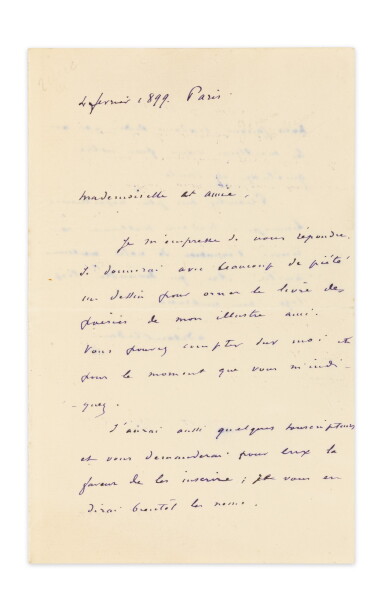 4 février 1899. Paris.
Mademoiselle et amie,
Je m'empresse de vous répondre.
Je donnerai avec beaucoup de piété
un dessin pour orner le livre des
poésies de mon illustre ami.
Vous pouvez compter sur moi et
pour le moment que vous m'indi-
-quez.
J'aurai aussi quelques souscripteurs
et vous demanderai pour eux la
faveur de les inscrire ; je vous en
dirai bientôt les noms.